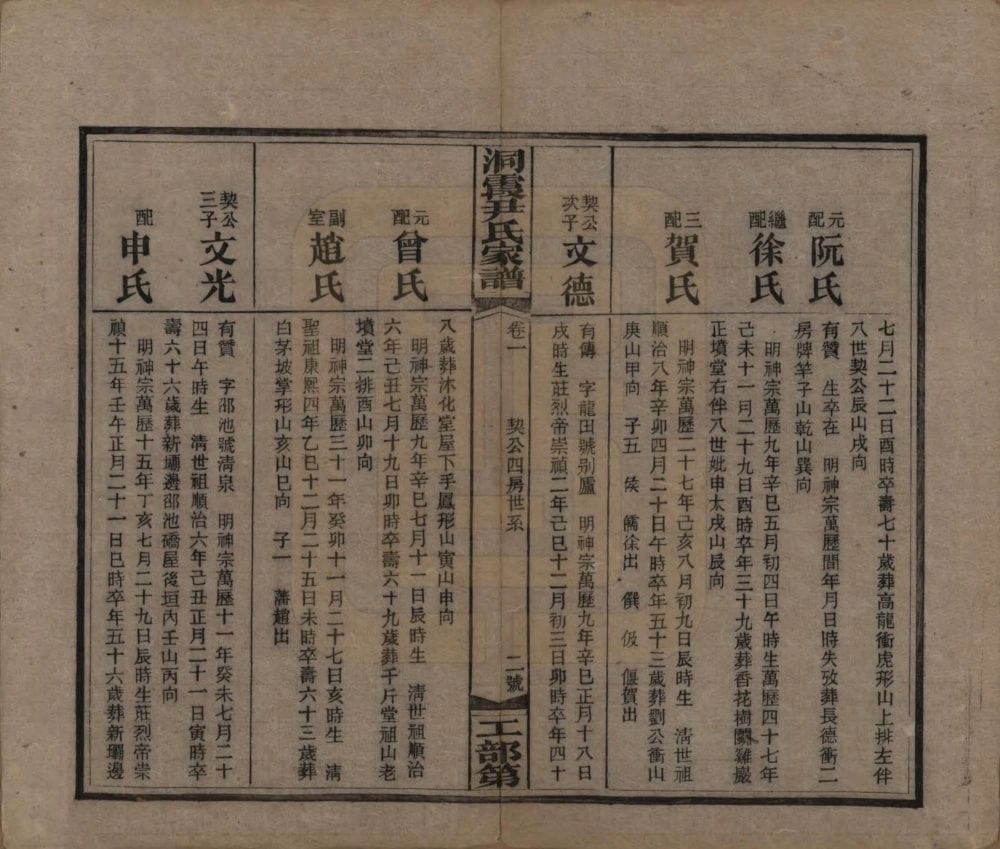 七月二十二日酉時卒壽七十歲葬高龍衝虎形山上排左伴
八世契公辰山戌向
元配阮氏
有贊　生卒在　明神宗萬歷間年月日時失攷葬長德衝二
房牌竿子山乾山巽向
繼配徐氏
明神宗萬歷九年辛巳五月初四日午時生萬歷四十七年
己未十一月二十九日酉時卒年三十九歲葬香花樹鬭雞巖
正墳堂右伴八世妣申太戌山辰向
三配賀氏
明神宗萬歷二十七年己亥八月初九日辰時生　淸世祖
順治八年辛卯四月二十日午時卒年五十三歲葬劉公衝山
庚山甲向　子五　儒徐出　僎　伋　偃賀出
契公次子文德
有傳　字龍田號別廬　明神宗萬歷九年辛巳正月十八日
戌時生莊烈帝崇禎二年己巳十二月初三日卯時卒年四十
洞霞尹氏家譜
卷一　契公四房世系　二號
工部第
八歲葬沐化堂屋下手鳳形山寅山申向
元配曾氏
明神宗萬歷九年辛巳七月十一日辰時生　淸世祖順治
六年己丑七月十九日卯時卒壽六十九歲葬千斤堂祖山老
墳堂二排酉山卯向
副室趙氏
明神宗萬歷三十一年癸卯十一月二十七日亥時生　淸
聖祖康熙四年乙巳十二月二十五日未時卒壽六十三歲葬
白茅坡掌形山亥山巳向　子一　藩趙出
契公三子文光
有贊　字邵池號淸泉　明神宗萬歷十一年癸未七月二十
四日午時生　淸世祖順治六年己丑正月二十一日寅時卒
壽六十六歲葬新壩邊邵池礄屋後垣內壬山丙向
配申氏
明神宗萬歷十五年丁亥七月二十九日辰時生莊烈帝崇
禎十五年壬午正月二十一日巳時卒年五十六歲葬新壩邊